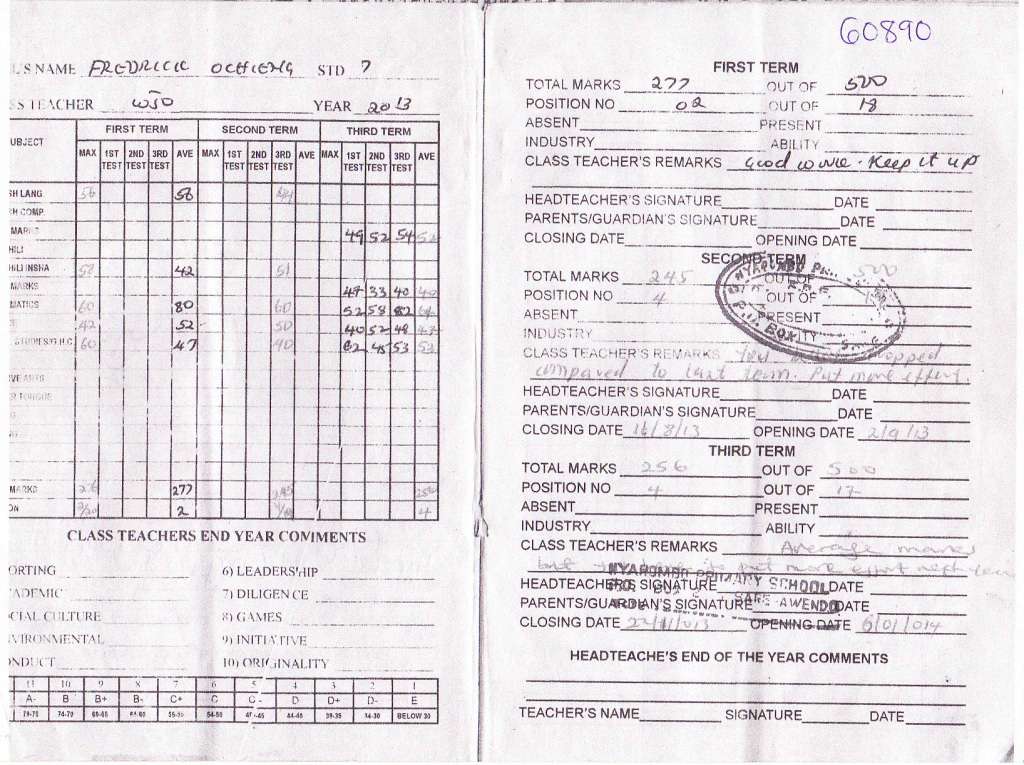 60890
L'S NAME FREDRICK OCHIENG STD 7
S TEACHER WJO YEAR 2013
UBJECT FIRST TERM SECOND TERM THIRD TERM
MAX 1ST TEST 2ND TEST 3RD TEST AVE MAX 1ST TEST 2ND TEST 3RD TEST AVE MAX 1ST TEST 2ND TEST 3RD TEST AVE
SH LANG. 56 56
H COMP.
MARKS 49 52 54 52
HILI
HILI INSHA 42 51
MARKS 33 40 40
MATICS 60 80 60 52 58 82 64
42 52 50 40 52 48 47
STUDIES/G.H.C 60 47 40 62 45 53 53
VE ARTS
R TONGUE
MARKS 277 245 256
ON 2 4
CLASS TEACHERS END YEAR COMMENTS
ORTING 6) LEADERSHIP
ADEMIC 7) DILIGENCE
CIAL CULTURE 8) GAMES
VIRONMENTAL 9) INITIATIVE
ONDUCT 10) ORIGINALITY
11 10 9 8 7 6 5 4 3 2 1
A- B B+ B- C+ C C- D D+ D- E
74-70 65-69 60-64 55-59 50-54 45-49 40-44 35-39 30-34 BELOW 30
FIRST TERM
TOTAL MARKS 277 OUT OF 500
POSITION NO 02 OUT OF 18
ABSENT PRESENT
INDUSTRY ABILITY
CLASS TEACHER'S REMARKS Good work. Keep it up
HEADTEACHER'S SIGNATURE DATE
PARENTS/GUARDIAN'S SIGNATURE DATE
CLOSING DATE OPENING DATE
SECOND TERM
TOTAL MARKS 245 OUT OF 500
POSITION NO 4 OUT OF
ABSENT PRESENT
INDUSTRY ABILITY
CLASS TEACHER'S REMARKS You dropped
compared to last term. Put more effort.
HEADTEACHER'S SIGNATURE DATE
PARENTS/GUARDIAN'S SIGNATURE DATE
CLOSING DATE 16/8/13 OPENING DATE 2/9/13
THIRD TERM
TOTAL MARKS 256 OUT OF 500
POSITION NO 4 OUT OF 17
ABSENT PRESENT
INDUSTRY ABILITY
CLASS TEACHER'S REMARKS Average marks
but put more effort next
NYAROMBO PRIMARY SCHOOL
HEADTEACHER'S SIGNATURE DATE
SARE-AWENDO
PARENTS/GUARDIAN'S SIGNATURE DATE
CLOSING DATE 22/11/013 OPENING DATE 6/01/014
HEADTEACHE'S END OF THE YEAR COMMENTS
TEACHER'S NAME SIGNATURE DATE